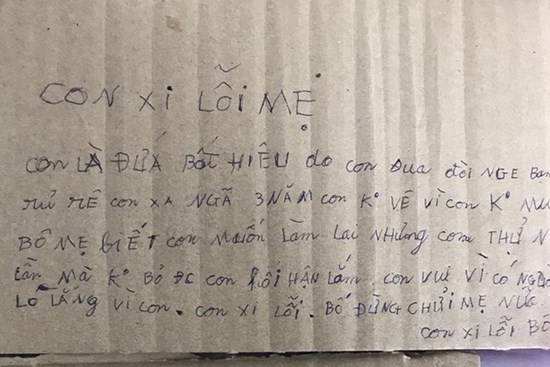 CON XI LỖI MẸ
con LÀ ĐỨA BẤT HIẾU do con Đua đòi NGE Bạn
rủ rê con XA NGÃ 3 NĂM con K° VỀ vì con K° MU
BỐ MẸ BIẾT con muốn Làm Lại NHƯNG con THỬ N
Lần MÀ K° BỎ ĐC con HỐI HẬN LẮM, con vui VÌ CÓ NGƯỜ
LO LẮNG vì con. con XI LỖI. BỐ ĐỪNG CHỬI MẸ NỮA
con XI LỖI BỐ